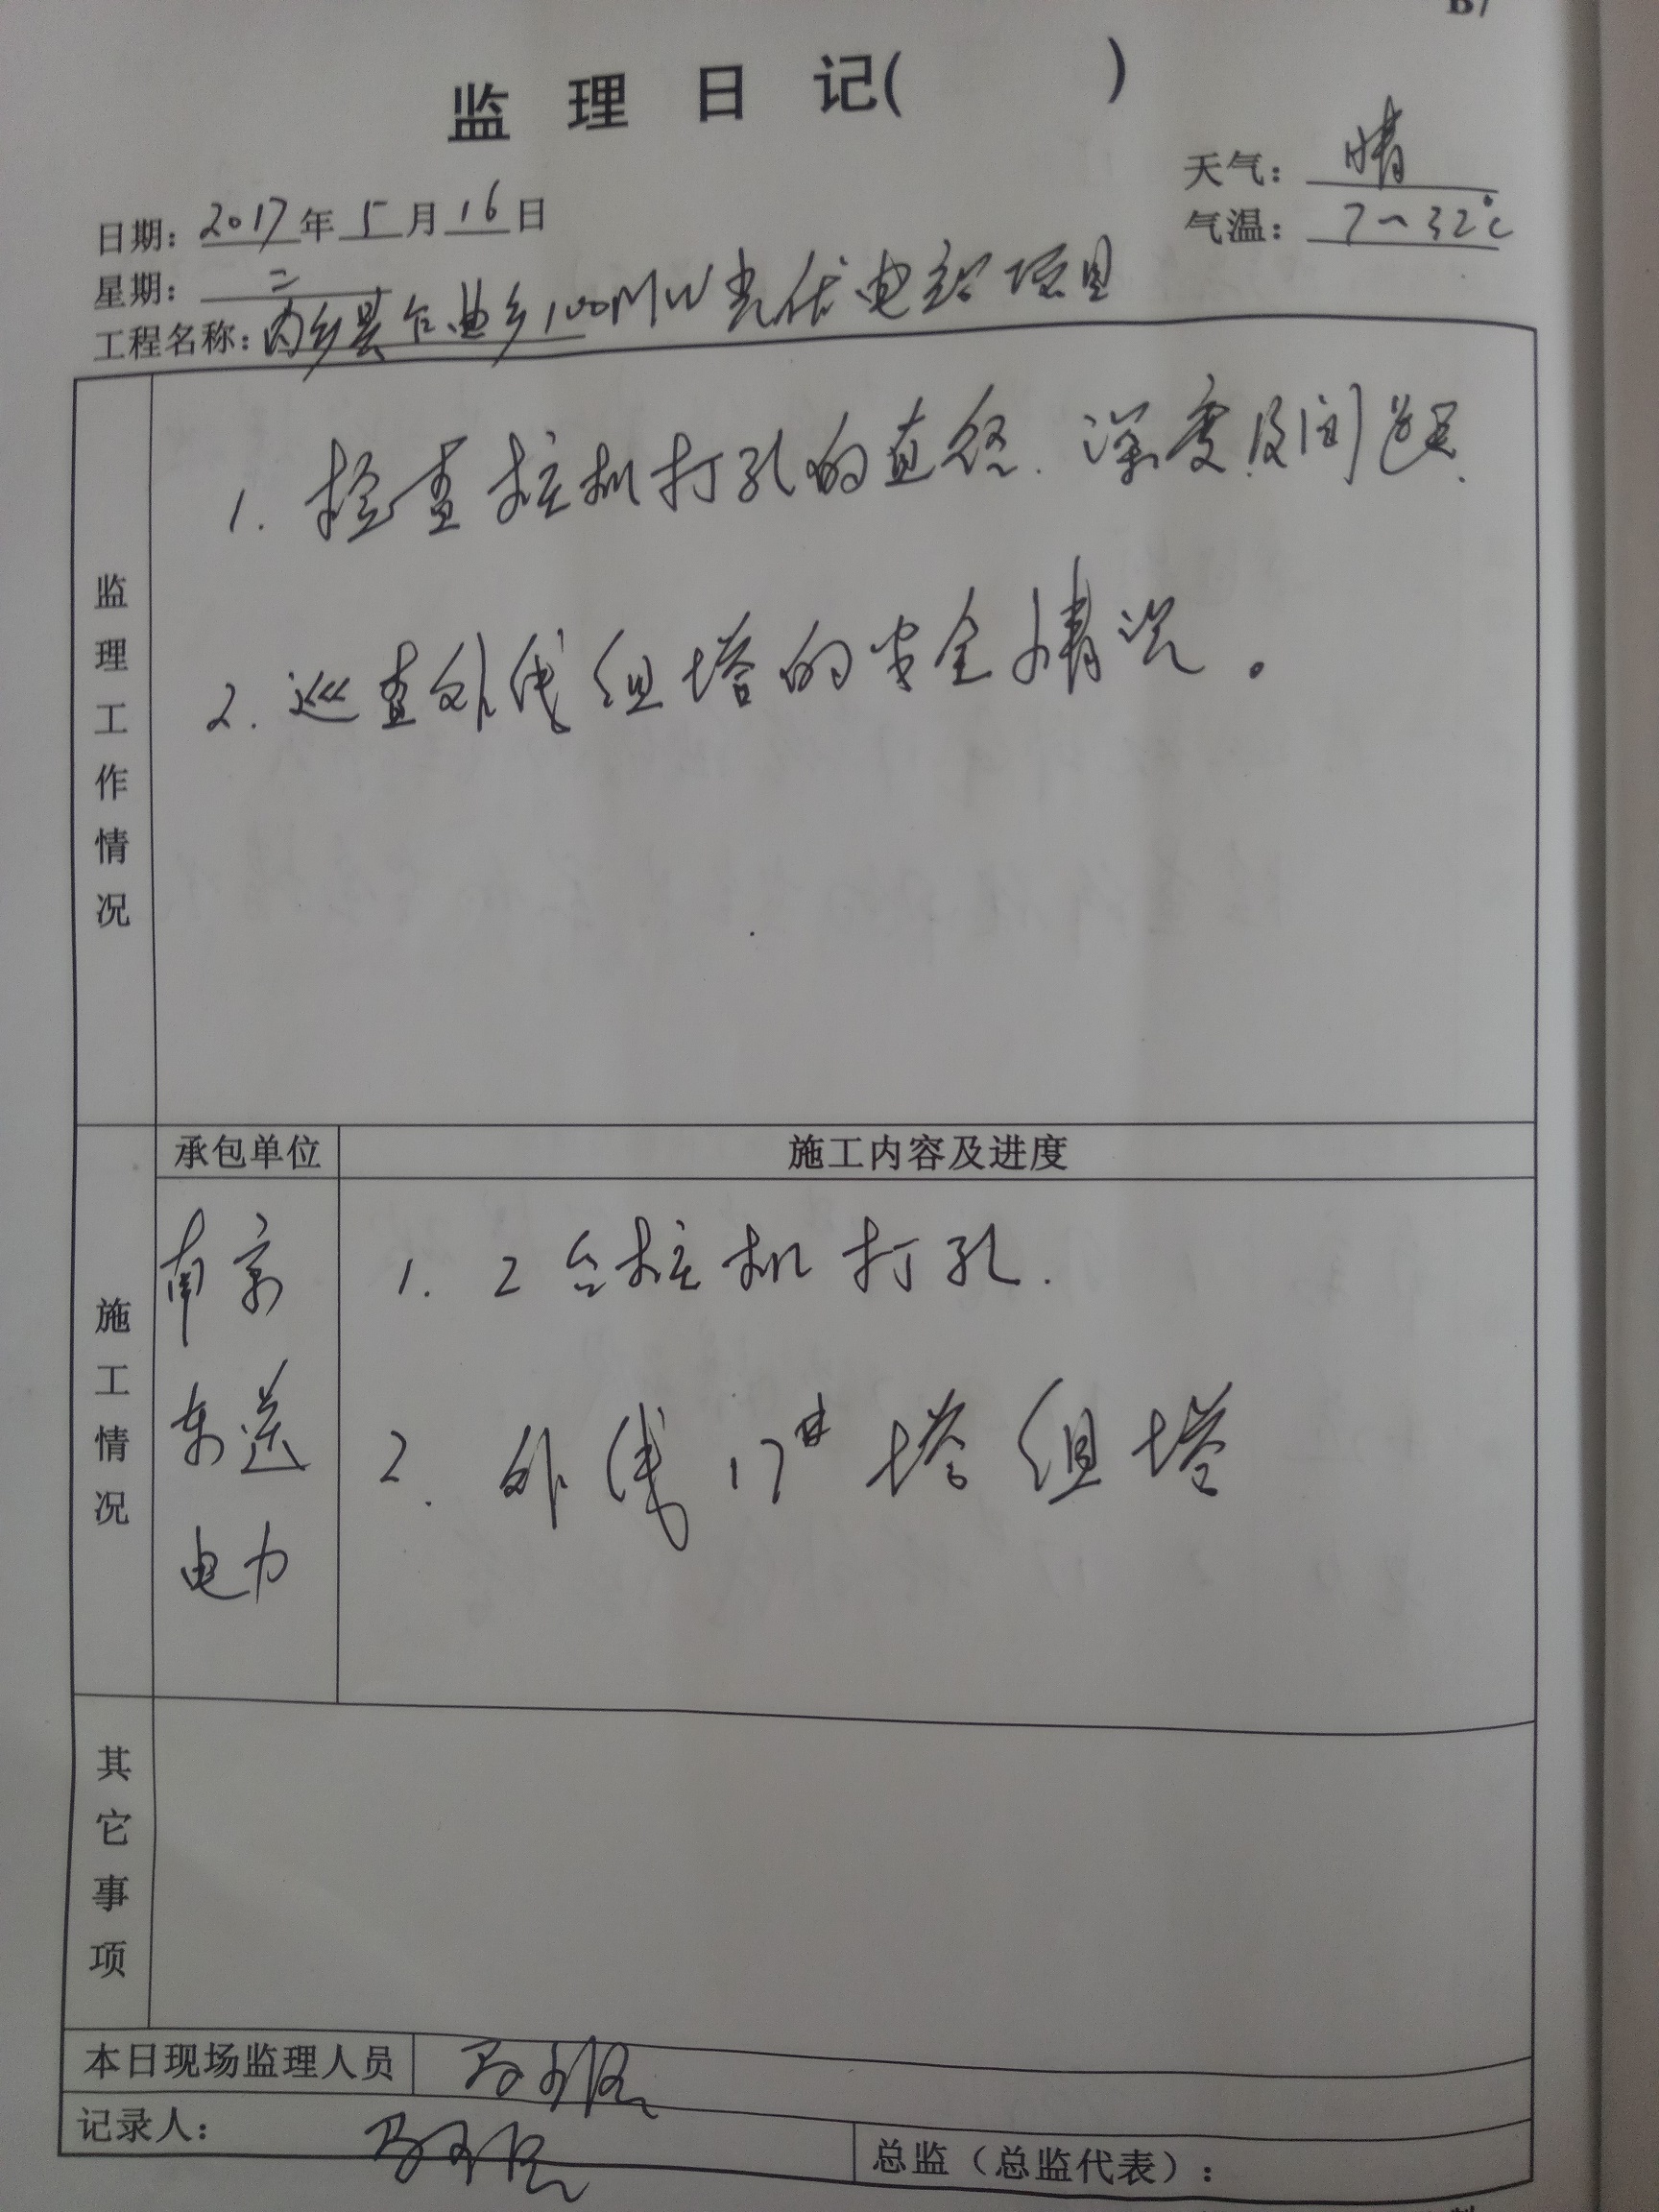 B7
监理日记(　　)
天气：晴
日期：2017年5月16日
气温：7~32℃
星期：二
工程名称：内乡县乍曲乡100MW光伏电站项目
监理工作情况
1. 检查桩机打孔的直径、深度及间距.
2. 巡查外线组塔的安全情况。
施工情况
承包单位
施工内容及进度
南京
东送
电力
1. 2台桩机打孔.
2. 外线17#塔组塔
其它事项
本日现场监理人员
记录人：
总监（总监代表）：